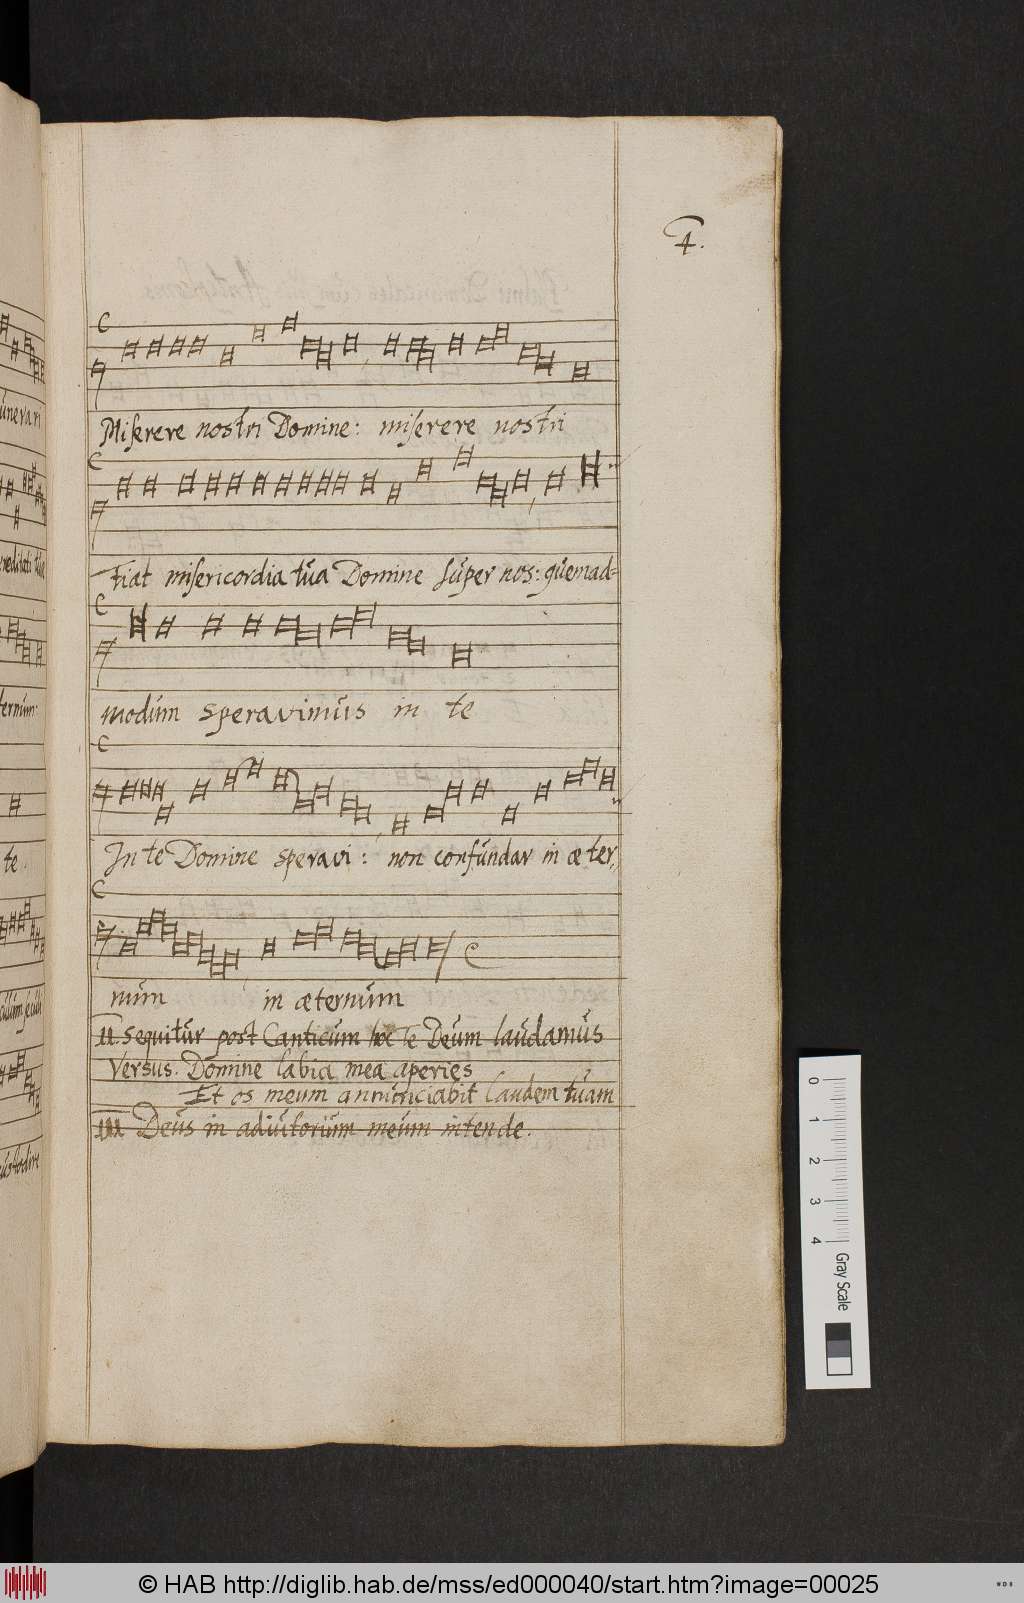 4.
Miserere nostri Domine: miserere nostri
Fiat misericordia tua Domine super nos: quemad=
modum speravimus in te
In te Domine speravi: non confundar in æter,
num in æternum
II. Sequitur post Canticum hoc Te Deum laudamus
Versus. Domine labia mea aperies
Et os meum annunciabit laudem tuam
III Deus in adiutorium meum intende.
ternum
te.
0 1 2 3 4
Gray Scale
© HAB http://diglib.hab.de/mss/ed000040/start.htm?image=00025